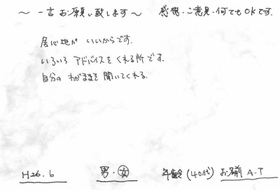 ～ 一言お願い致します ～　感想・ご意見・何でもOKです。
居心地が いいからです。
いろいろ アドバイスをくれる所です。
自分の わがままを 聞いてくれる。
H26.6　男・女　年齢(40代)　お名前 A.T